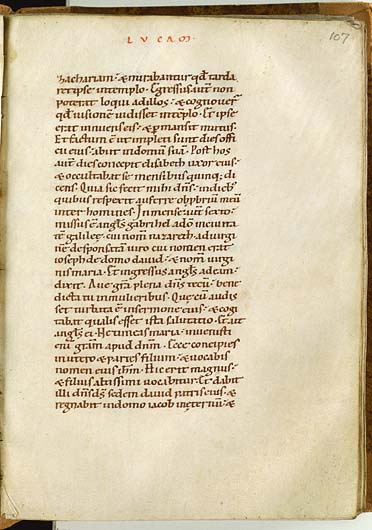 LUCAM
107
zachariam. & mirabantur qđ tarda
ret ipse in templo. Egressus aut̄ non
poterat loqui ad illos. & cognouer̄
qđ uisionē uidisset in tēplo. Et ipse
erat innuens eis. & pmansit mutus.
Et factum ē ut impleti sunt dies offi
cii eius. abiit in domum suā. Post hos
aut̄ dies concepit elisabeth uxor eius.
& occultabat se mensibus quinq; di
cens. Quia sic fecit mihi dn̄s. in dieb;
quibus respexit auferre obprbriū meū
inter homines. In mense aut̄ sexto.
missus ē angl̄s gabrihel a dō in ciuita
tē galileę. cui nom̄ nazareth. ad uirgi
nē desponsatā uiro cui nomen erat
ioseph de domo dauid. & nom̄ uirgi
nis maria. Et ingressus angl̄s ad eā
dixit. Aue gr̄a plena dn̄s tecū. bene
dicta tu in mulieribus. Quę cū audis
set turbata ē in sermone eius. & cogi
tabat qualis esset ista salutatio. Et ait
angl̄s ei. Ne timeas maria. inuenisti
eni gr̄am apud dn̄m. Ecce concipies
in utero & paries filium. & uocabis
nomen eius ih̄m. Hic erit magnus.
& filius altissimi uocabitur. Et dabit
illi dn̄s dſ̄ sedem dauid patris eius. &
regnabit in domo iacob in ęternū. &